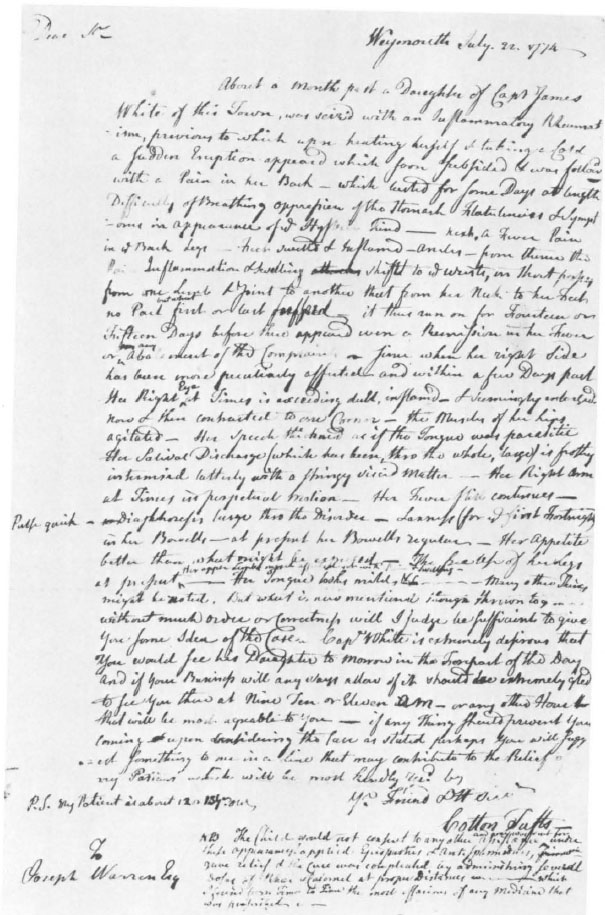 Dear Sr
Weymouth July. 22. 1774
About a month past a Daughter of Capt James
White of this Town, was seized with an Inflammatory Rheumat
-ism, previous to which upon heating herself & taking a Cold
a sudden Eruption appeared which soon subsided & was follow
with a Pain in her Back - which lasted for some Days at length
Difficulty of Breathing oppression of the Stomach Flatulencies & Sympt
-oms in appearance of ye Kind - a Fever Pain
in ye Back Legs - Feet swelled & Inflamed - Ancles - from thence the
Pain Inflammation & swelling shifts to ye wrists, in short
from one Limb & Joint to another that from her Neck to her Feet
no Part but what first or last suffered - it thus run on for Fourteen or
Fifteen Days before there appeared even a Remission in her Fever
or any Abatement of the Complaints - since when her right side
has been more peculiarly affected - and within a few Days past
Her Right Eye at Times is exceeding dull, inflamd - & seemingly
now & then contracted to one Corner - the Muscles of her Lips
agitated - Her Speech thickned as if the Tongue was paralitic
Her Salival Discharge (which has been, thro the whole, large) is frothy
intermixd latterly with a stringy viscid Matter - Her Right Arm
at Times in perpetual Motion - Her Fever still continues -
Pulse quick -
Diaphoresis large thro the Disorder - Laxness (for ye first Fortnight
in her Bowells - at present her Bowells regular - Her Appetite
better than what might be expected - The use of her Legs
at present - Her Tongue looks Many other Things
might be noted. But what is now mentioned though thrown tog
without much Order or Correctness will I judge be sufficient to give
You some Idea of the Case - Capt White is extremely desirous that
You would see his Daughter to morrow in the Forepart of the Day
And if your Business will any ways allow of it should be extremely glad
to see You there at Nine Ten or Eleven A.M - or any other Hour
that will be most agreable to you - if any Thing should prevent your
coming & upon considering the Case as stated perhaps You will sugg
-est something to me in a line that may contribute to the Relief
my Patient which will be most kindly by
Yr Friend
Cotton Tufts -
P.S. My Patient is about 12 or 13 yrs old
To
Joseph Warren Esq
NB The Child would not consent to any other
these appearances applied Epispastics & Antispasmodics,
gave relief & the Case was complicated by administring several
at proper Distances
from Time to Time the most efficacious of any Medicine that
was